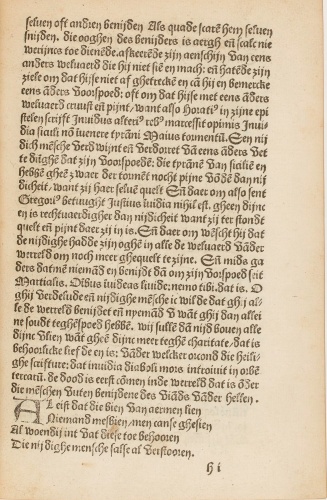 seluen oft andren benijden Als quade scarẽ hem seluen
snijden. die ooghen des benijders is aergh eñ scalc nie
werijnts toe dienẽde. afkeerẽde zijn aenschijn van eens
anders weluaerd die hij niet siẽ en mach: eñ hatẽde zijn
ziele om dat hijse niet af ghetrecke en cã hij en bemercke
eens ãders voorspoed: oft om dat hijse met eens ãders
weluaerd cruust eñ pijnt / want also Horatiꝰ in zijne epi
stelen scrijft Inuidus alteriꝰ rebꝰ marcessit opimis Inui
dia siculi nõ iuenere tyrãni Maius tormentũ. Sen nij
dich mẽsche verdwijnt eñ verdorret vã eens ãders vet
te dinghẽ dat zijn voorspoedẽ: die tyrãnẽ van scaliẽ en
hebbẽ gheẽ zwaer der tormẽt nocht pijne võdẽ dan nij
dicheit / want zij haer seluẽ quelt Eñ daer om also sent
Gregoriꝰ betuught Justius iuidia nihil est. gheen dijnc
en is rechtuaerdigher dan nijdicheit want zij ter stondt
quelt eñ pijnt daer zij in is. Eñ daer om wẽscht hij dat
de nijdighe hadde zijn oghẽ in alle de weluaerd vãder
werreld om noch meer ghequelt te zijne. Eñ mids ga
ders datmẽ niemãd en benijdt dã om zijn vorspoed seit
Martialis. Olbus iuideas liuide: nemo tibi. dat is. O
ghij verdelude eñ nijdighe mẽsche ic wilde dat ghij al
le de werreld benijdet eñ nyemãd v wãt ghij dan allei
ne soudt teghẽspoed hebbẽ. wij sullẽ dã nijd bouen alle
dijnc vlien wãt gheẽ dijnc meer teghẽ charitate / dat is
behoorlicke lief de en is: vãder welcker orcond die heili-
ghe scrifture: dat inuidia diaboli mors introiuit in orbẽ
terrarũ. de dood is eerst cõmen inde werreld dat is õder
die mẽschen vuten benijdene des viãds vãder hellen.
Al eist dat die bien van aermen lien
Niemand mesbien / men canse ghesien
Al woendij int vat diese toe behooren
Die nijdighe mensche salse al verstooren.
h i